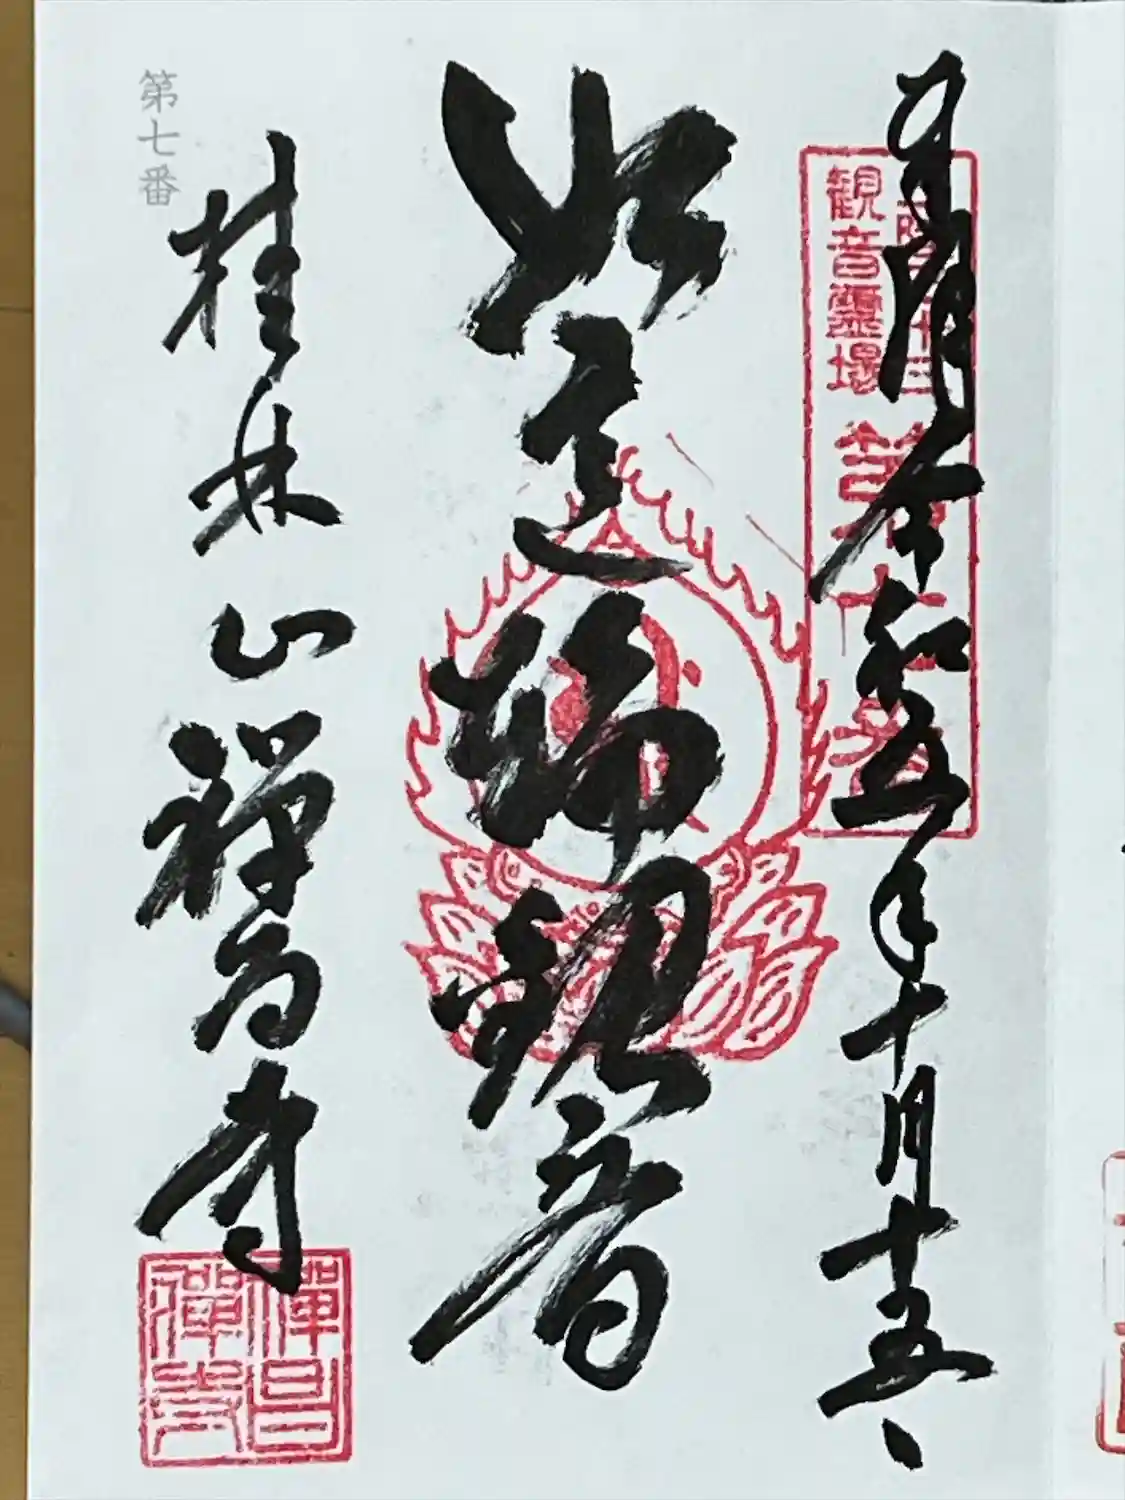 奉拝 令和五年十月十五日
観音霊場
第七番
如意輪観音
第七番
桂林山禅昌寺
禅昌
禅寺